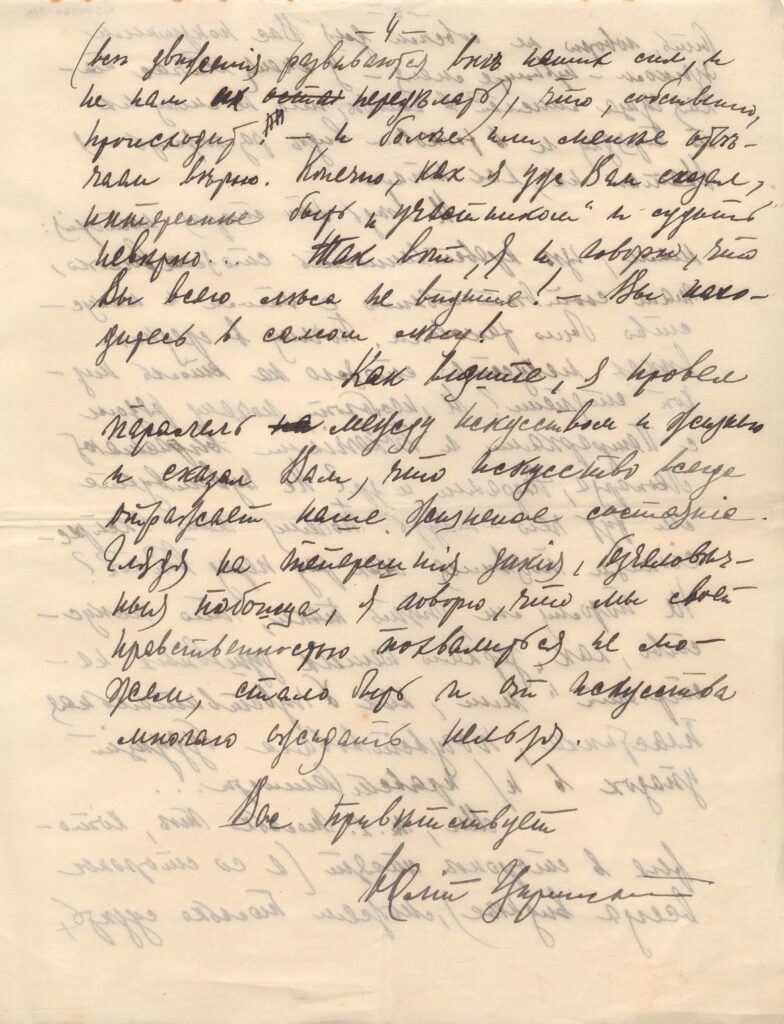 4
(всѣ движенія развиваются внѣ наших сил, и
не нам их остан передѣлать), что, собственно,
происходит? — и болѣе или менѣе отвѣ-
чаем вѣрно. Конечно, как я уже Вам сказал,
интереснѣе быть „участником“ и судить
невѣрно... Так вот, я и говорю, что
Вы всего лѣса не видите! — Вы нахо-
дитесь в самом лѣсу!
Как видите, я провел
паралель на между искусством и жизнью
и сказал Вам, что искусство всегда
отражает наше жизненое состояніе.
Глядя на теперешнія дикія, безчеловѣч-
ныя побоища, я говорю, что мы своей
нравственностью похвалиться не мо-
жем, стало быть и от искусства
многаго ожидать нельзя.
Вас привѣтствует
Юлій